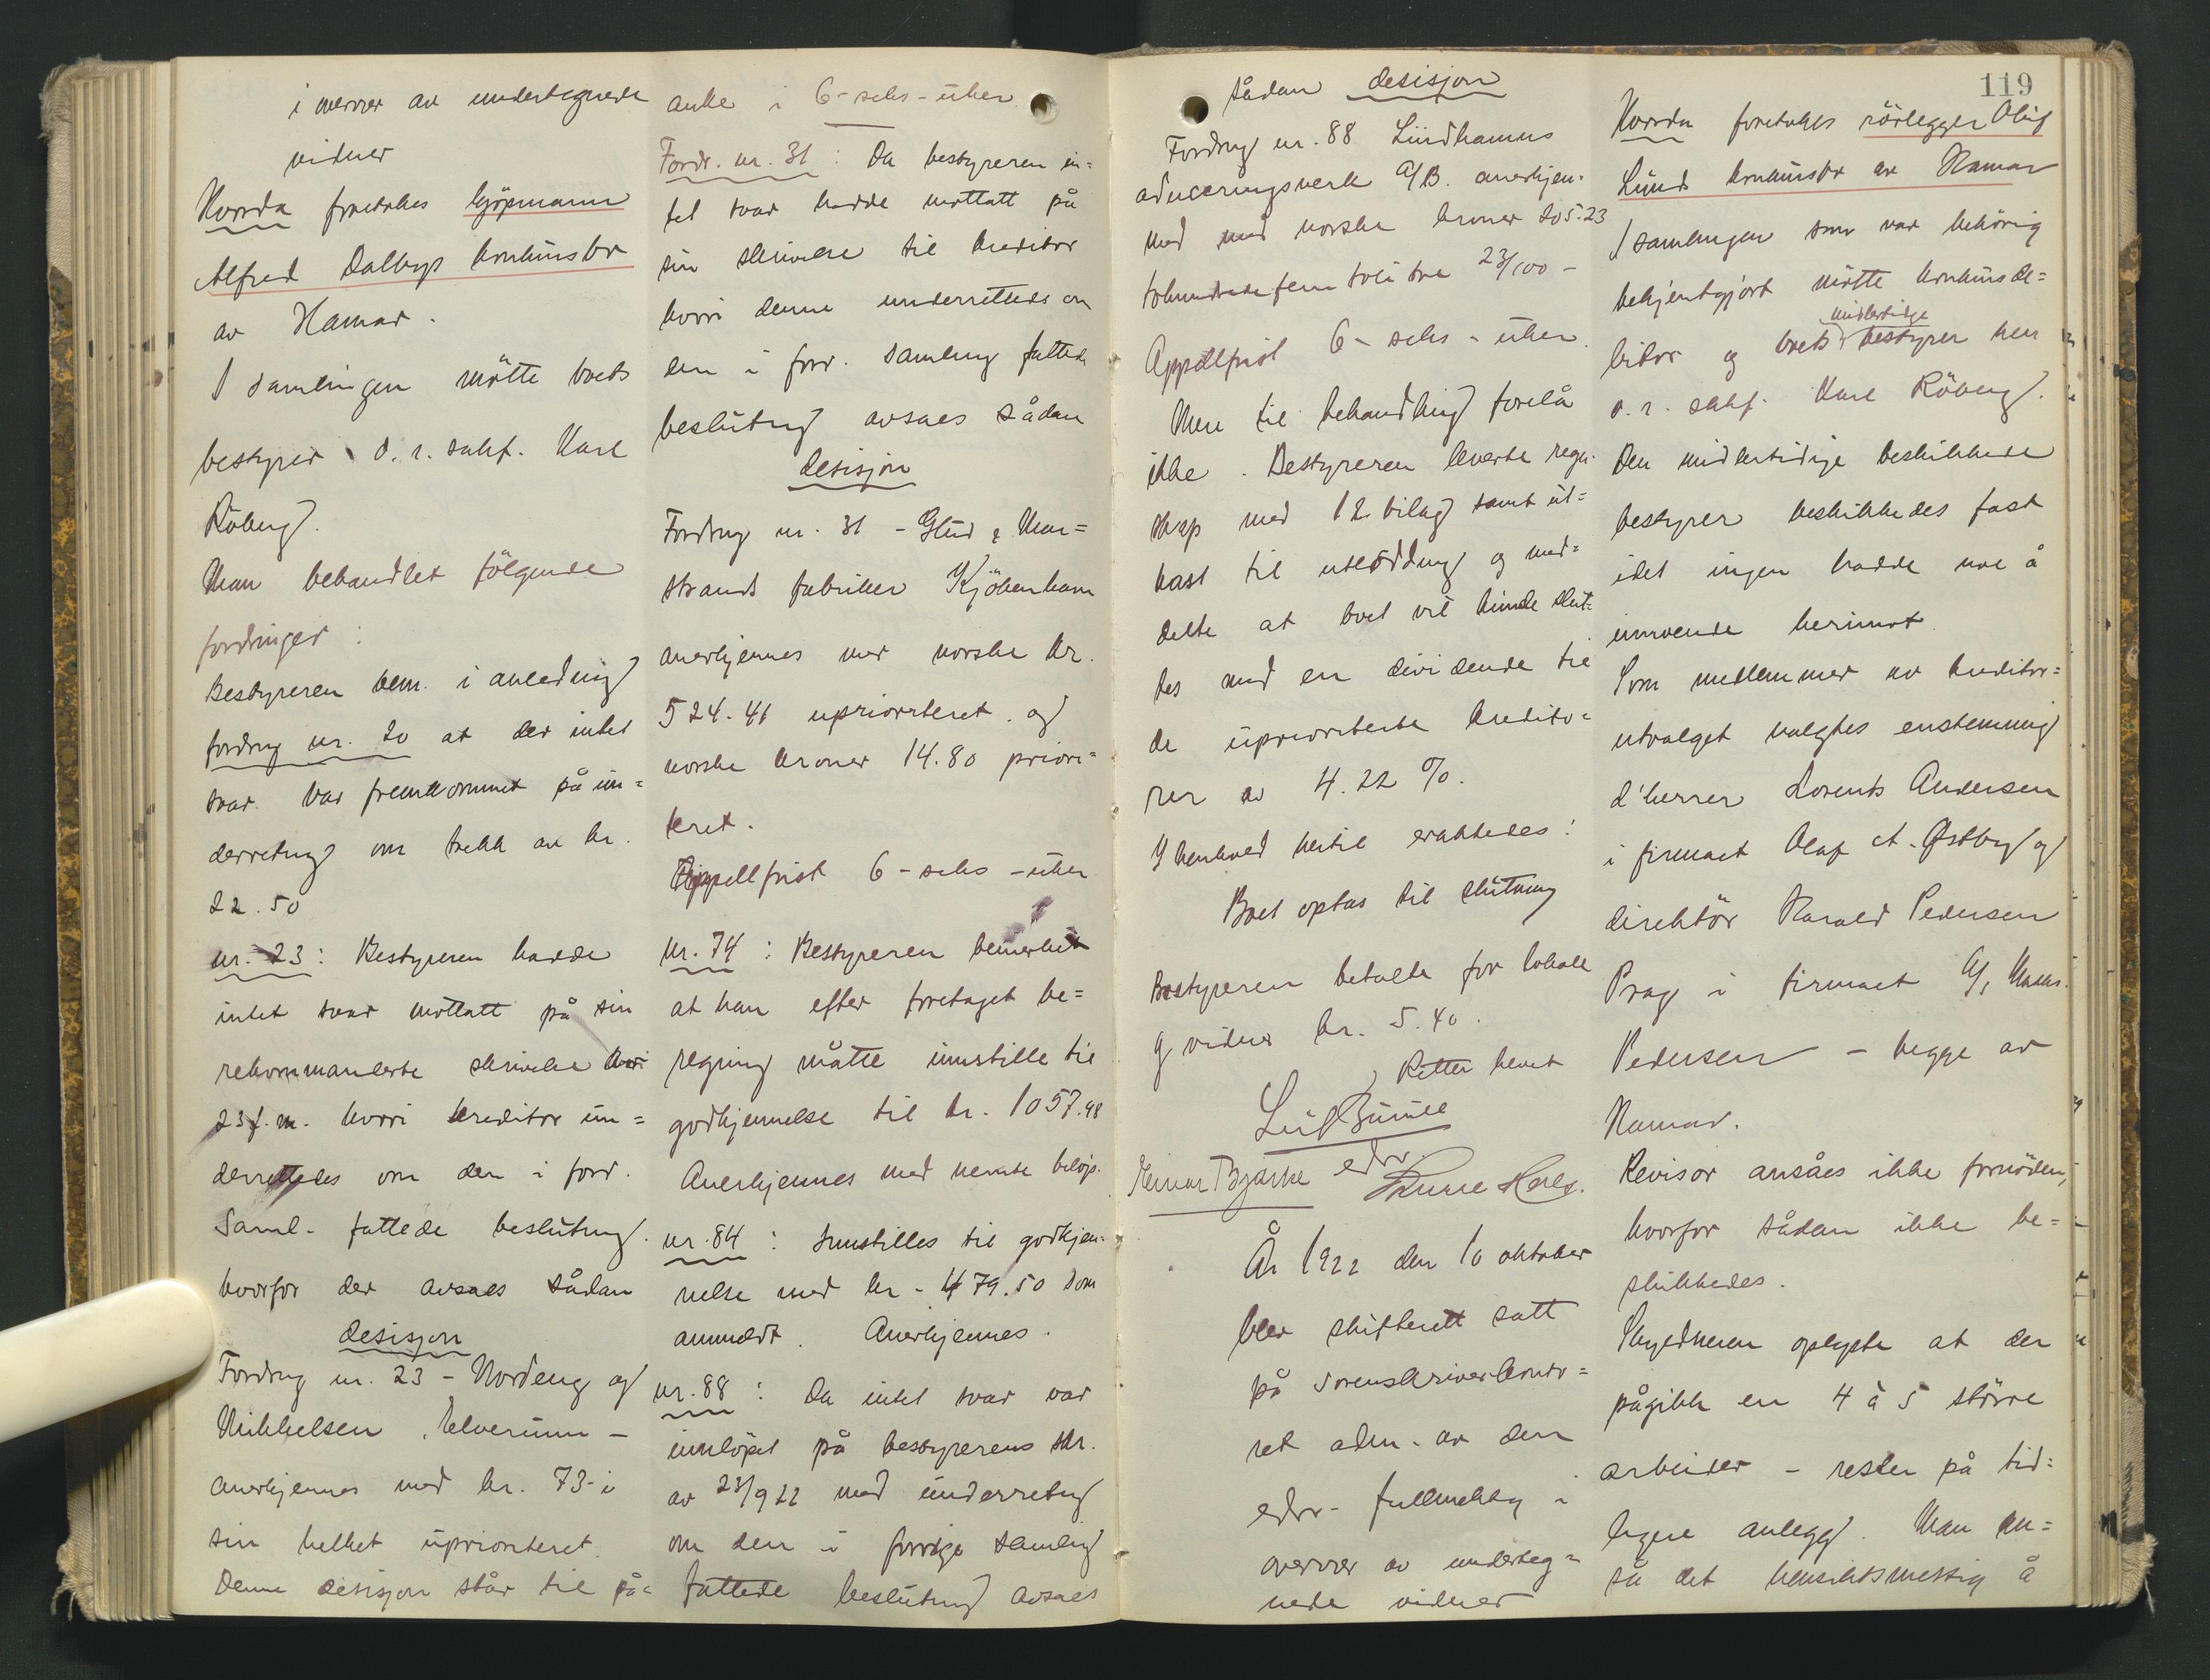 i overvær av undertegnede
vidner
Hvorda foretokes kjöpmann
Alfred Dalbys konkursbo
av Hamar.
I samlingen mötte boets
bestyrer o.r.sakf. Karl
Röberg.
Man behandlet fölgende
fordringer:
Bestyreren bem. i anledning
fordring nr. 20 at der intet
svar var fremkommet på un=
derretning om trekk av kr.
22.50
nr. 23: Bestyreren hadde
intet svar mottatt på sin
rekommanderte skrivelse
23 f.m. hvori kreditor un=
derrettedes om den i forr.
saml. fattede beslutning.
hvorfor der avsaes sådan
desisjon
Fordring nr. 23 - Nordeng og
Mikkelsen, Elverum -
anerkjennes med kr. 73- i
sin helhet uprioriteret.
Denne desisjon står til på=
anke i 6-seks-uker
Fordr. nr. 31: Da bestyreren in=
tet svar hadde mottatt på
sin skrivelse til kreditor
hvori denne underrettedes om
den i forr. samling fattede
beslutning avsaes sådan
desisjon
Fordring nr. 31 - Glud & Mar=
strands fabriker Kjöbenhavn
anerkjennes med norske kr.
524.41 uprioriteret og
norske kroner 14.80 priori=
teret.
Appellfrist 6-seks-uker
Nr. 74: Bestyreren bemerket
at han efter foretaget be=
regning måtte innstille til
godkjennelse til kr. 1057.98
Anerkjennes med nevnte belöp.
nr. 84: Innstilles til godkjen=
nelse med kr. 479.50 som
anmeldt. Anerkjennes.
nr. 88: Da intet svar var
innlöpet på bestyrerens skr.
av 23/9 22 med underretning
om den i forrige samling
fattede beslutning avsaes
sådan desisjon
Fordring nr. 88 Lindhamns
aduceringsverk A/B. anerkjen=
nes med norske kroner 205.23
tohundredefem toti tre 23/100 -
Appellfrist 6-seks-uker.
Mere til behandling forelå
ikke. Bestyreren leverte regn=
skap med 12 bilag samt ut=
kast til utlodning og med=
delte at boet vil kunde slut=
tes med en dividende til
de uprioriterte kredito=
rer av 4.22 %.
I henhold hertil eraktedes:
Boet optas til slutning
Bestyreren betalte for lokale
og vidner kr. 5.40.
Retten hevet
edsv.
År 1922 den 10 oktober
blev skifterett satt
på sorenskriverkonto=
ret adm. av den
edsv. fullmektig i
overvær av underteg=
nede vidner
119
Hvorda foretokes rörlegger Oluf
Lunds konkursbo av Hamar
I samlingen som var behörig
bekjentgjort mötte konkursde=
midlertidige
bitor og boets bestyrer herr
o.r. sakf. Karl Röberg.
Den midlertidige beskikkede
bestyrer beskikkedes fast
idet ingen hadde noe å
innvende herimot.
Som medlemmer av kreditor=
utvalget valgtes enstemmig
d'herrer Lorents Andersen
i firmaet Olaf A. Østby og
direktör Harald Pedersen
Prag i firmaet A/S
Pedersen - begge av
Hamar.
Revisor ansåes ikke fornöden,
hvorfor sådan ikke be=
skikkedes.
Skyldneren oplyste at der
pågikk en 4 à 5 större
arbeider - rester på tid=
ligere anlegg. Man an=
så det hensiktsmessig å